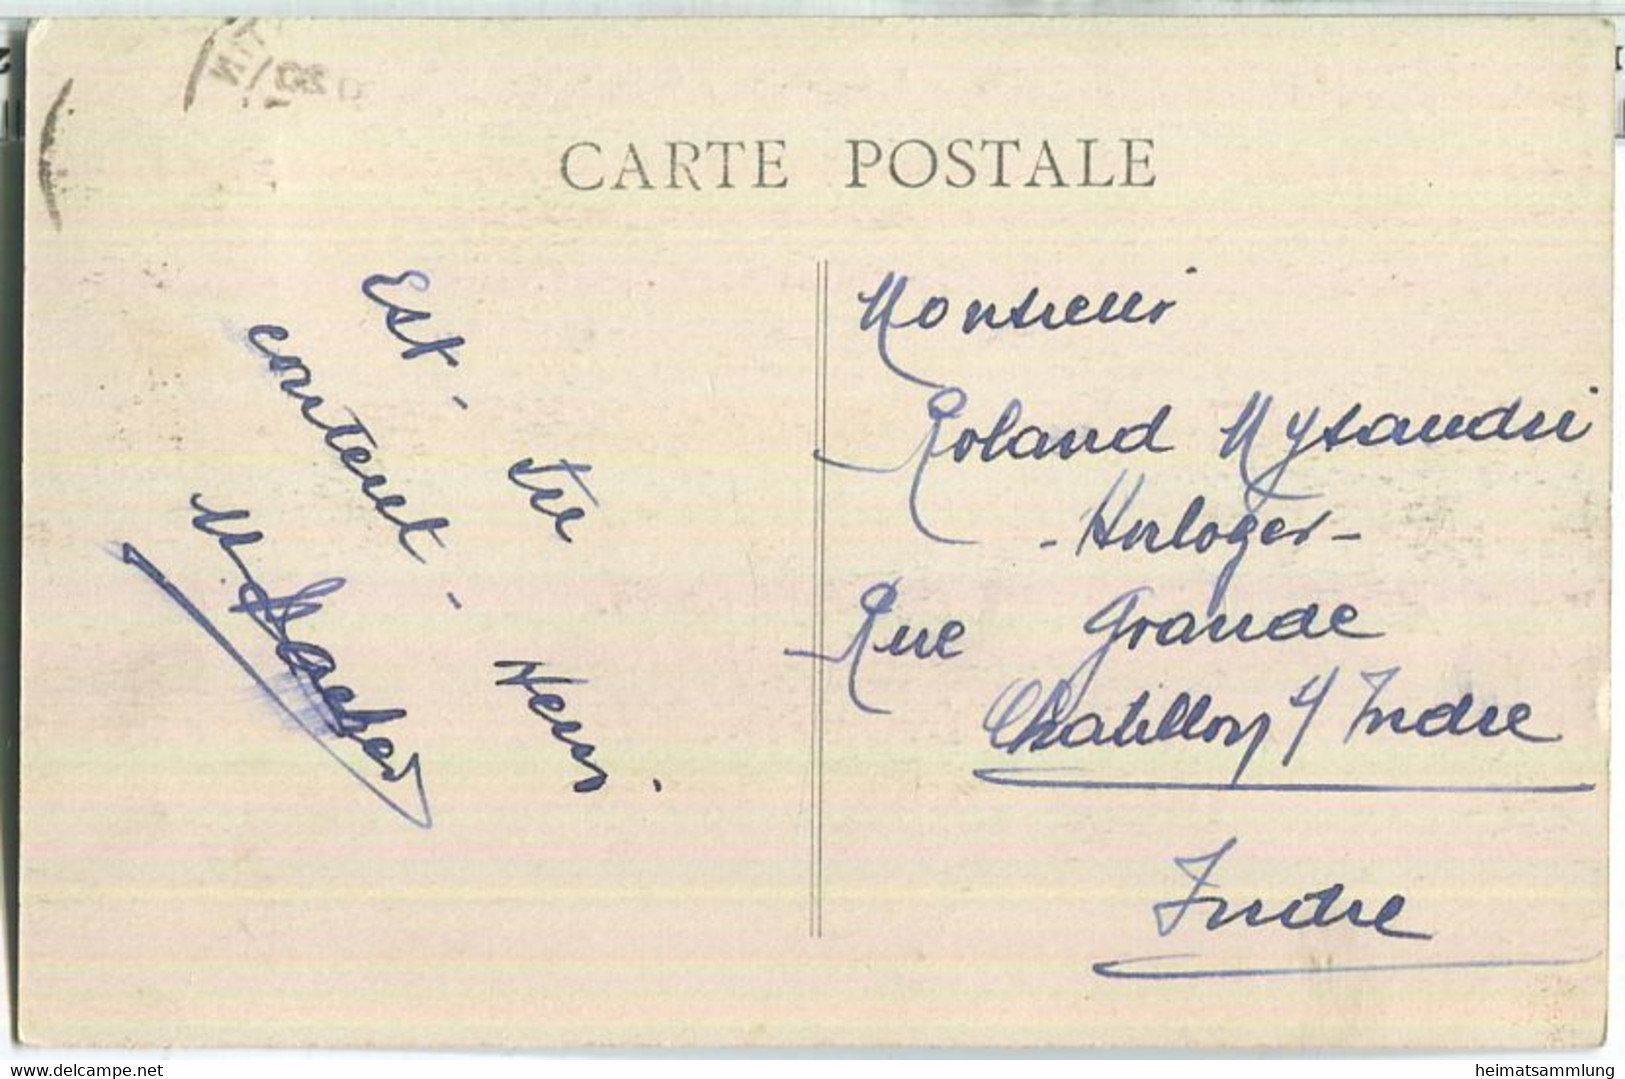 CARTE POSTALE
Est-tu
content-Henri.
Monsieur
Roland Mysandri
-Horloger-
Rue Grande
Chatillon s/ Indre
Indre
www.delcampe.net
heimatsammlung